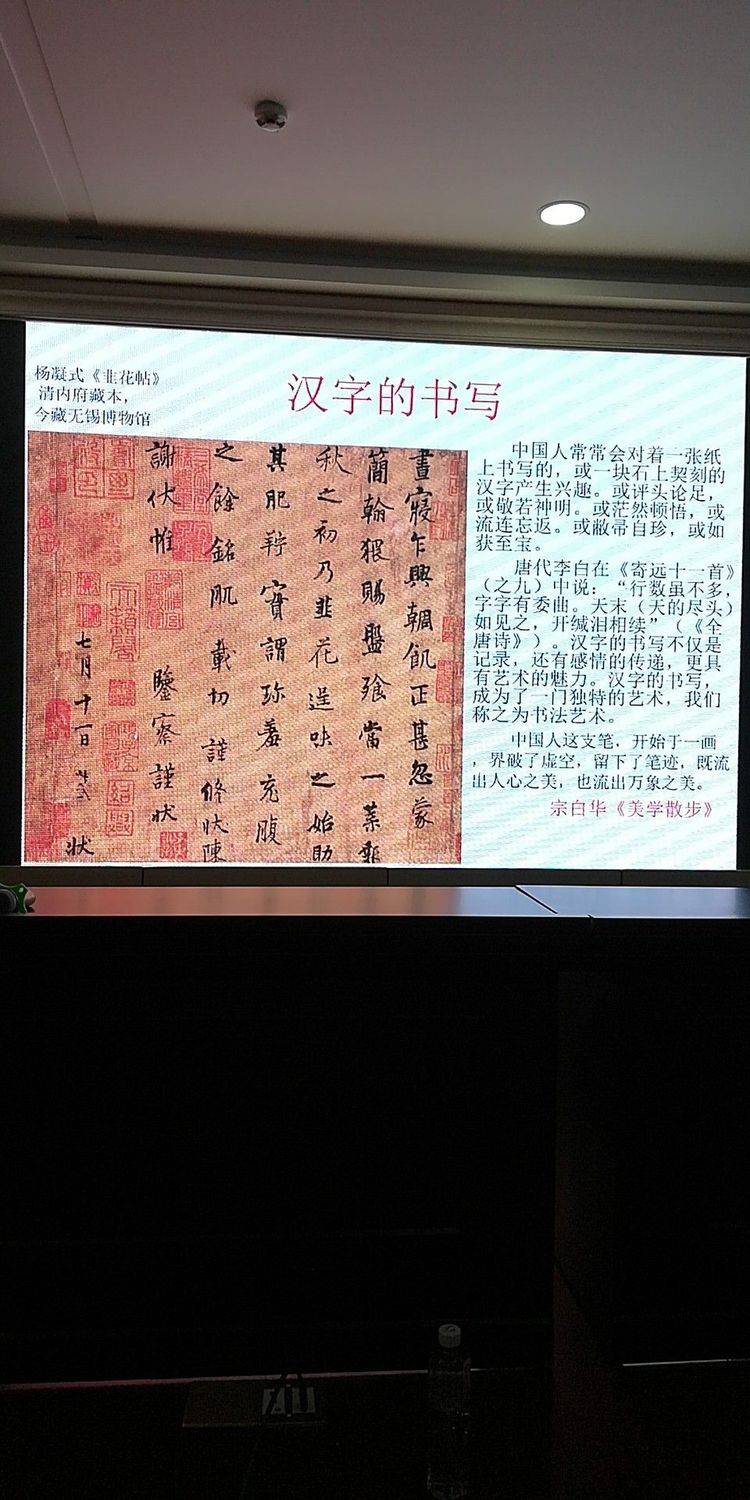 汉字的书写
杨凝式《韭花帖》
清内府藏本，
今藏无锡博物馆
晝寢乍興輖飢正甚忽蒙
簡翰猥賜盤飧當一葉報
秋之初乃韭花逞味之始助
其肥羜實謂珍羞充腹
之餘銘肌載切謹修狀陳
謝伏惟
鑒察謹狀
七月十一日
狀
中国人常常会对着一张纸
上书写的，或一块石上契刻的
汉字产生兴趣。或评头论足，
或敬若神明。或茫然顿悟，或
流连忘返。或敝帚自珍，或如
获至宝。
唐代李白在《寄远十一首》
（之九）中说：“行数虽不多，
字字有委曲。天末（天的尽头）
如见之，开缄泪相续”（《全
唐诗》）。汉字的书写不仅是
记录，还有感情的传递，更具
有艺术的魅力。汉字的书写，
成为了一门独特的艺术，我们
称之为书法艺术。
中国人这支笔，开始于一画
，界破了虚空，留下了笔迹，既流
出人心之美，也流出万象之美。
宗白华《美学散步》